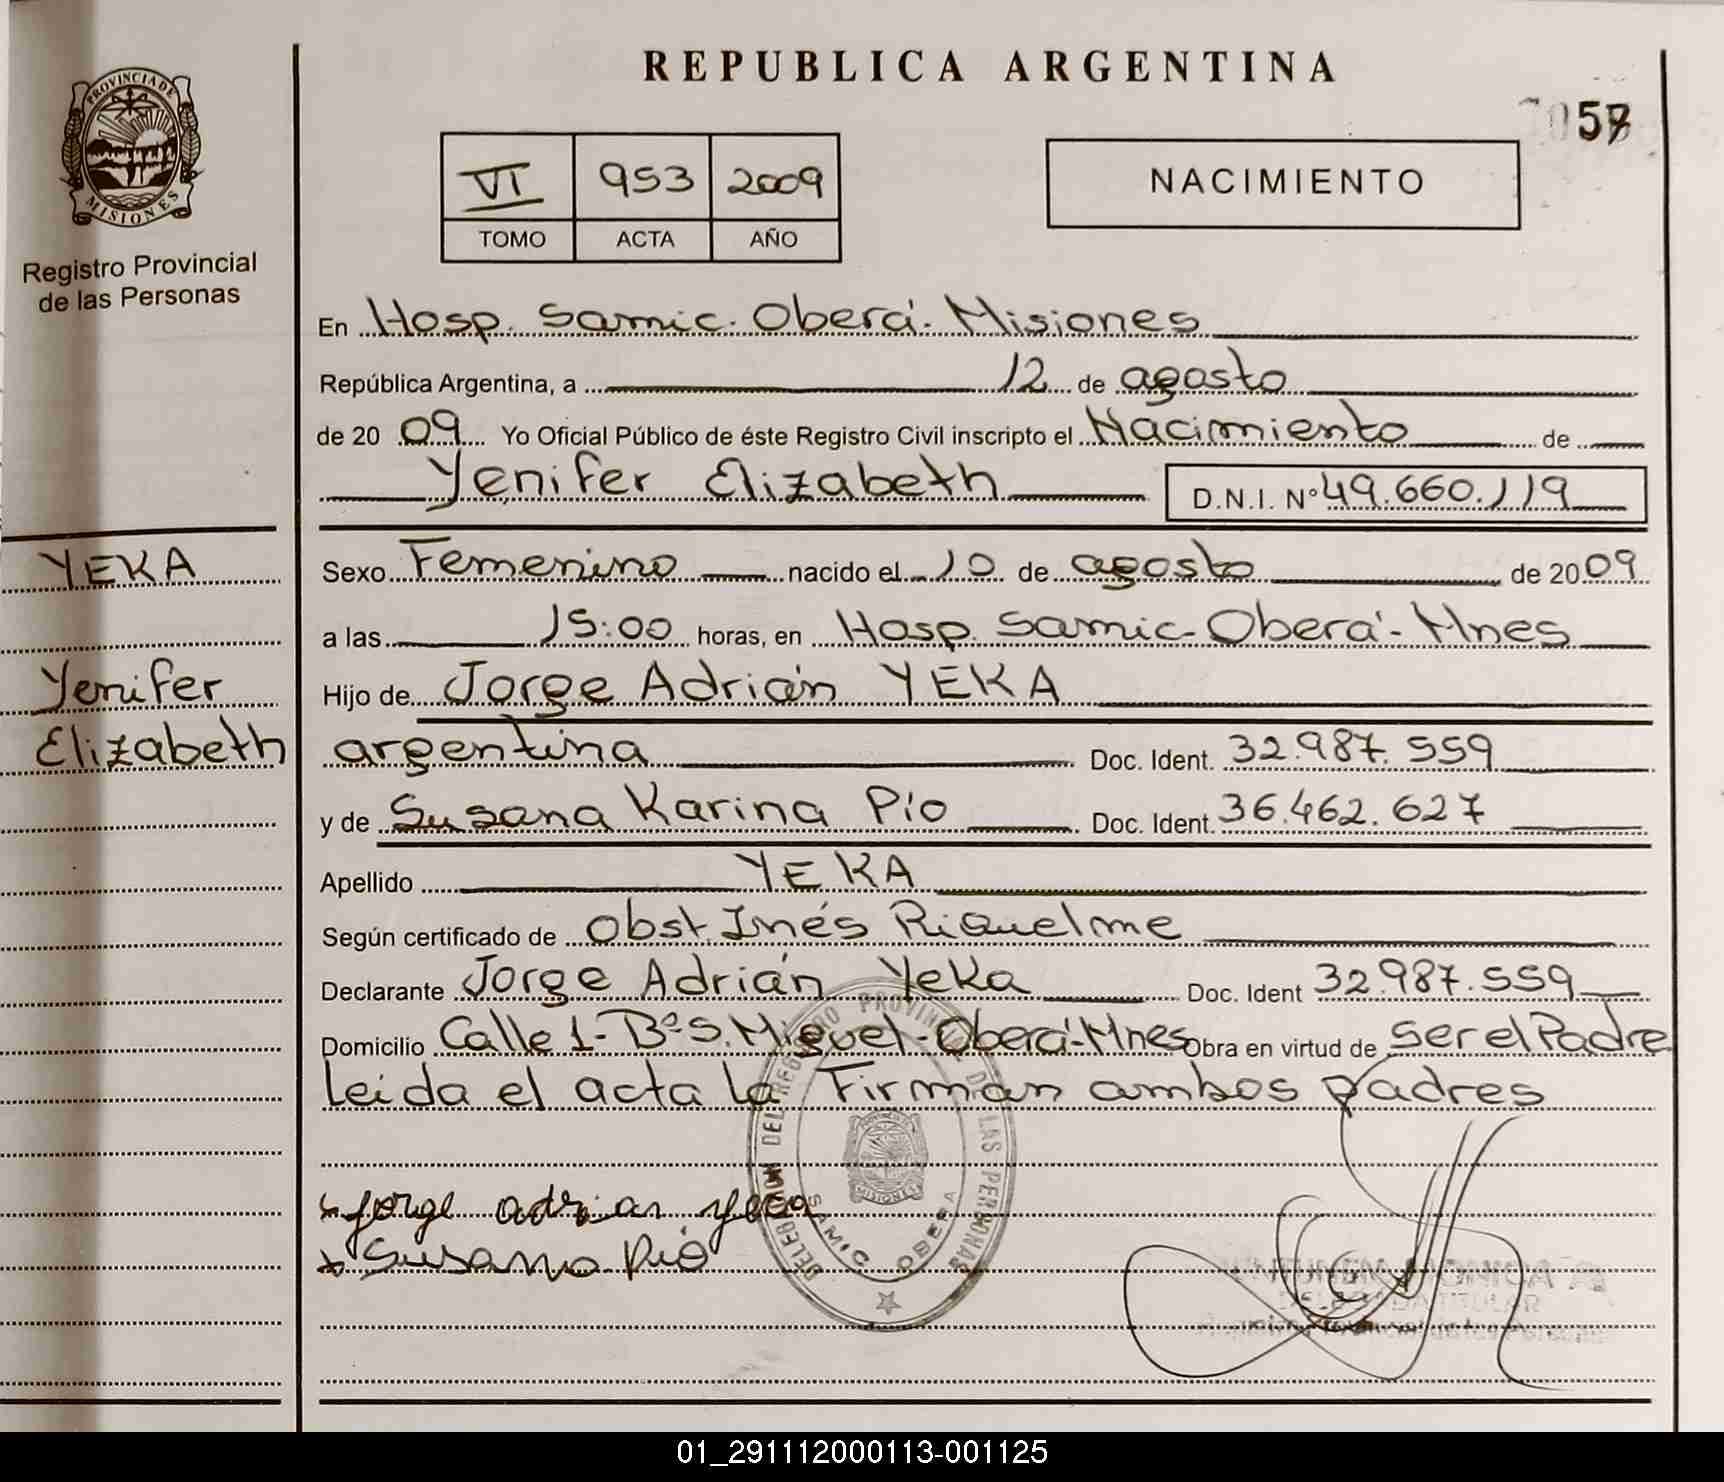 REPUBLICA ARGENTINA
57
PROVINCIA DE
MISIONES
Registro Provincial
de las Personas
VI 953 2009
TOMO ACTA AÑO
NACIMIENTO
En Hosp. Samic. Oberá. Misiones
República Argentina, a 12 de agosto
de 2009 Yo Oficial Público de éste Registro Civil inscripto el Nacimiento de
Yenifer Elizabeth D.N.I. Nº 49.660.119
YEKA
Yenifer
Elizabeth
Sexo Femenino nacido el 10 de agosto de 2009
a las 15:00 horas, en Hosp. Samic-Oberá-Mnes
Hijo de Jorge Adrián YEKA
argentina Doc. Ident. 32.987.559
y de Susana Karina Pío Doc. Ident. 36.462.627
Apellido YEKA
Según certificado de Obst. Inés Riquelme
Declarante Jorge Adrián Yeka Doc. Ident 32.987.559
Domicilio Calle 1-Bº S. Miguel-Oberá-Mnes Obra en virtud de ser el Padre
Leida el acta la Firman ambos padres
x Jorge adrian yeca
x Susana Pió
DELEGACION DEL REGISTRO PROVINCIAL DE LAS PERSONAS
SAMIC OBERA
MISIONES
01_291112000113-001125